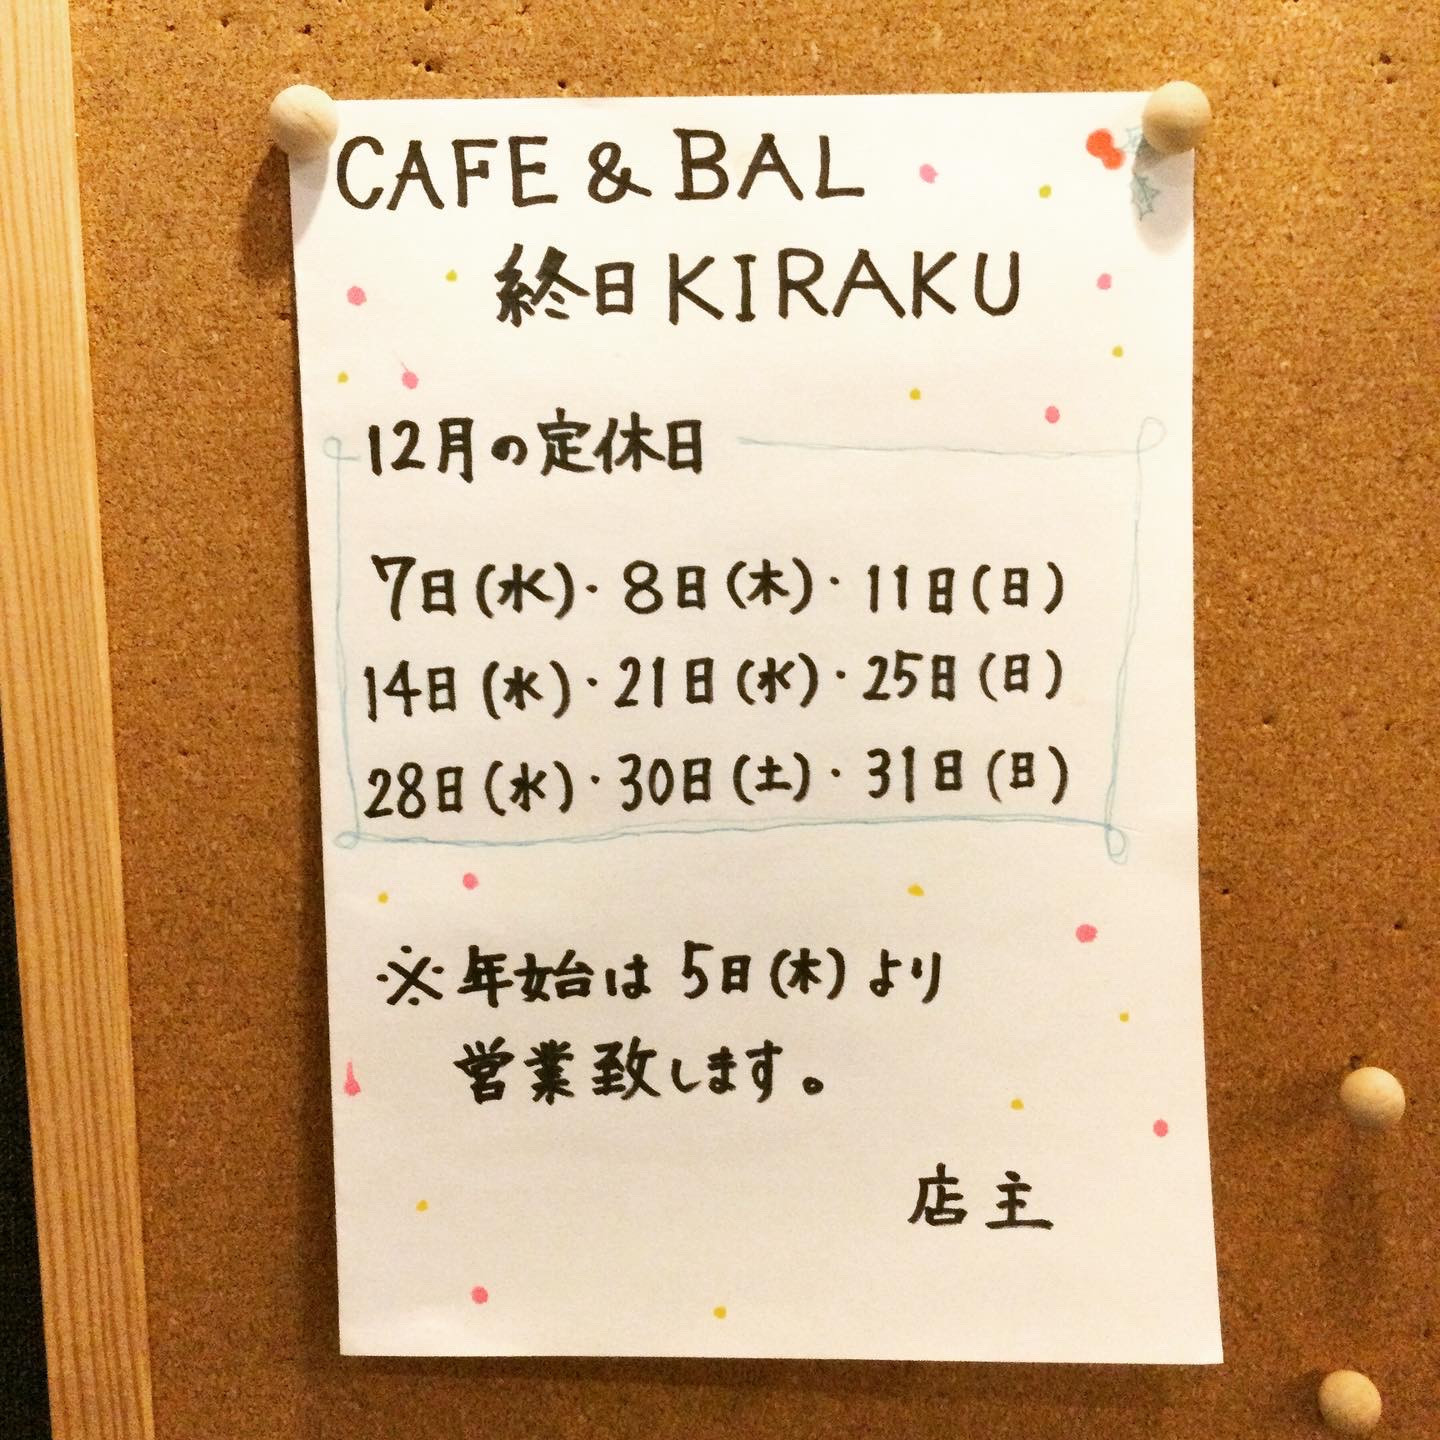 CAFE & BAL
終日KIRAKU
12月の定休日
7日(水)・8日(木)・11日(日)
14日(水)・21日(水)・25日(日)
28日(水)・30日(土)・31日(日)
※年始は5日(木)より
営業致します。
店主